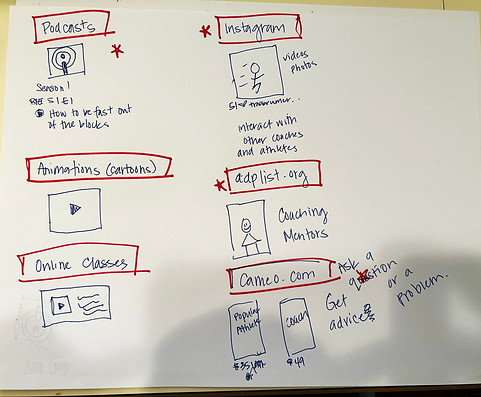 Podcasts
Season 1
S1E1
How to be fast out
of the blocks
Animations (cartoons)
Online Classes
Instagram
videos
photos
interact with
other coaches
and athletes
adplist.org
Coaching
Mentors
Cameo.com
Popular
Athlete
$35
coach
$49
Ask a
question
or a
problem.
Get
advice